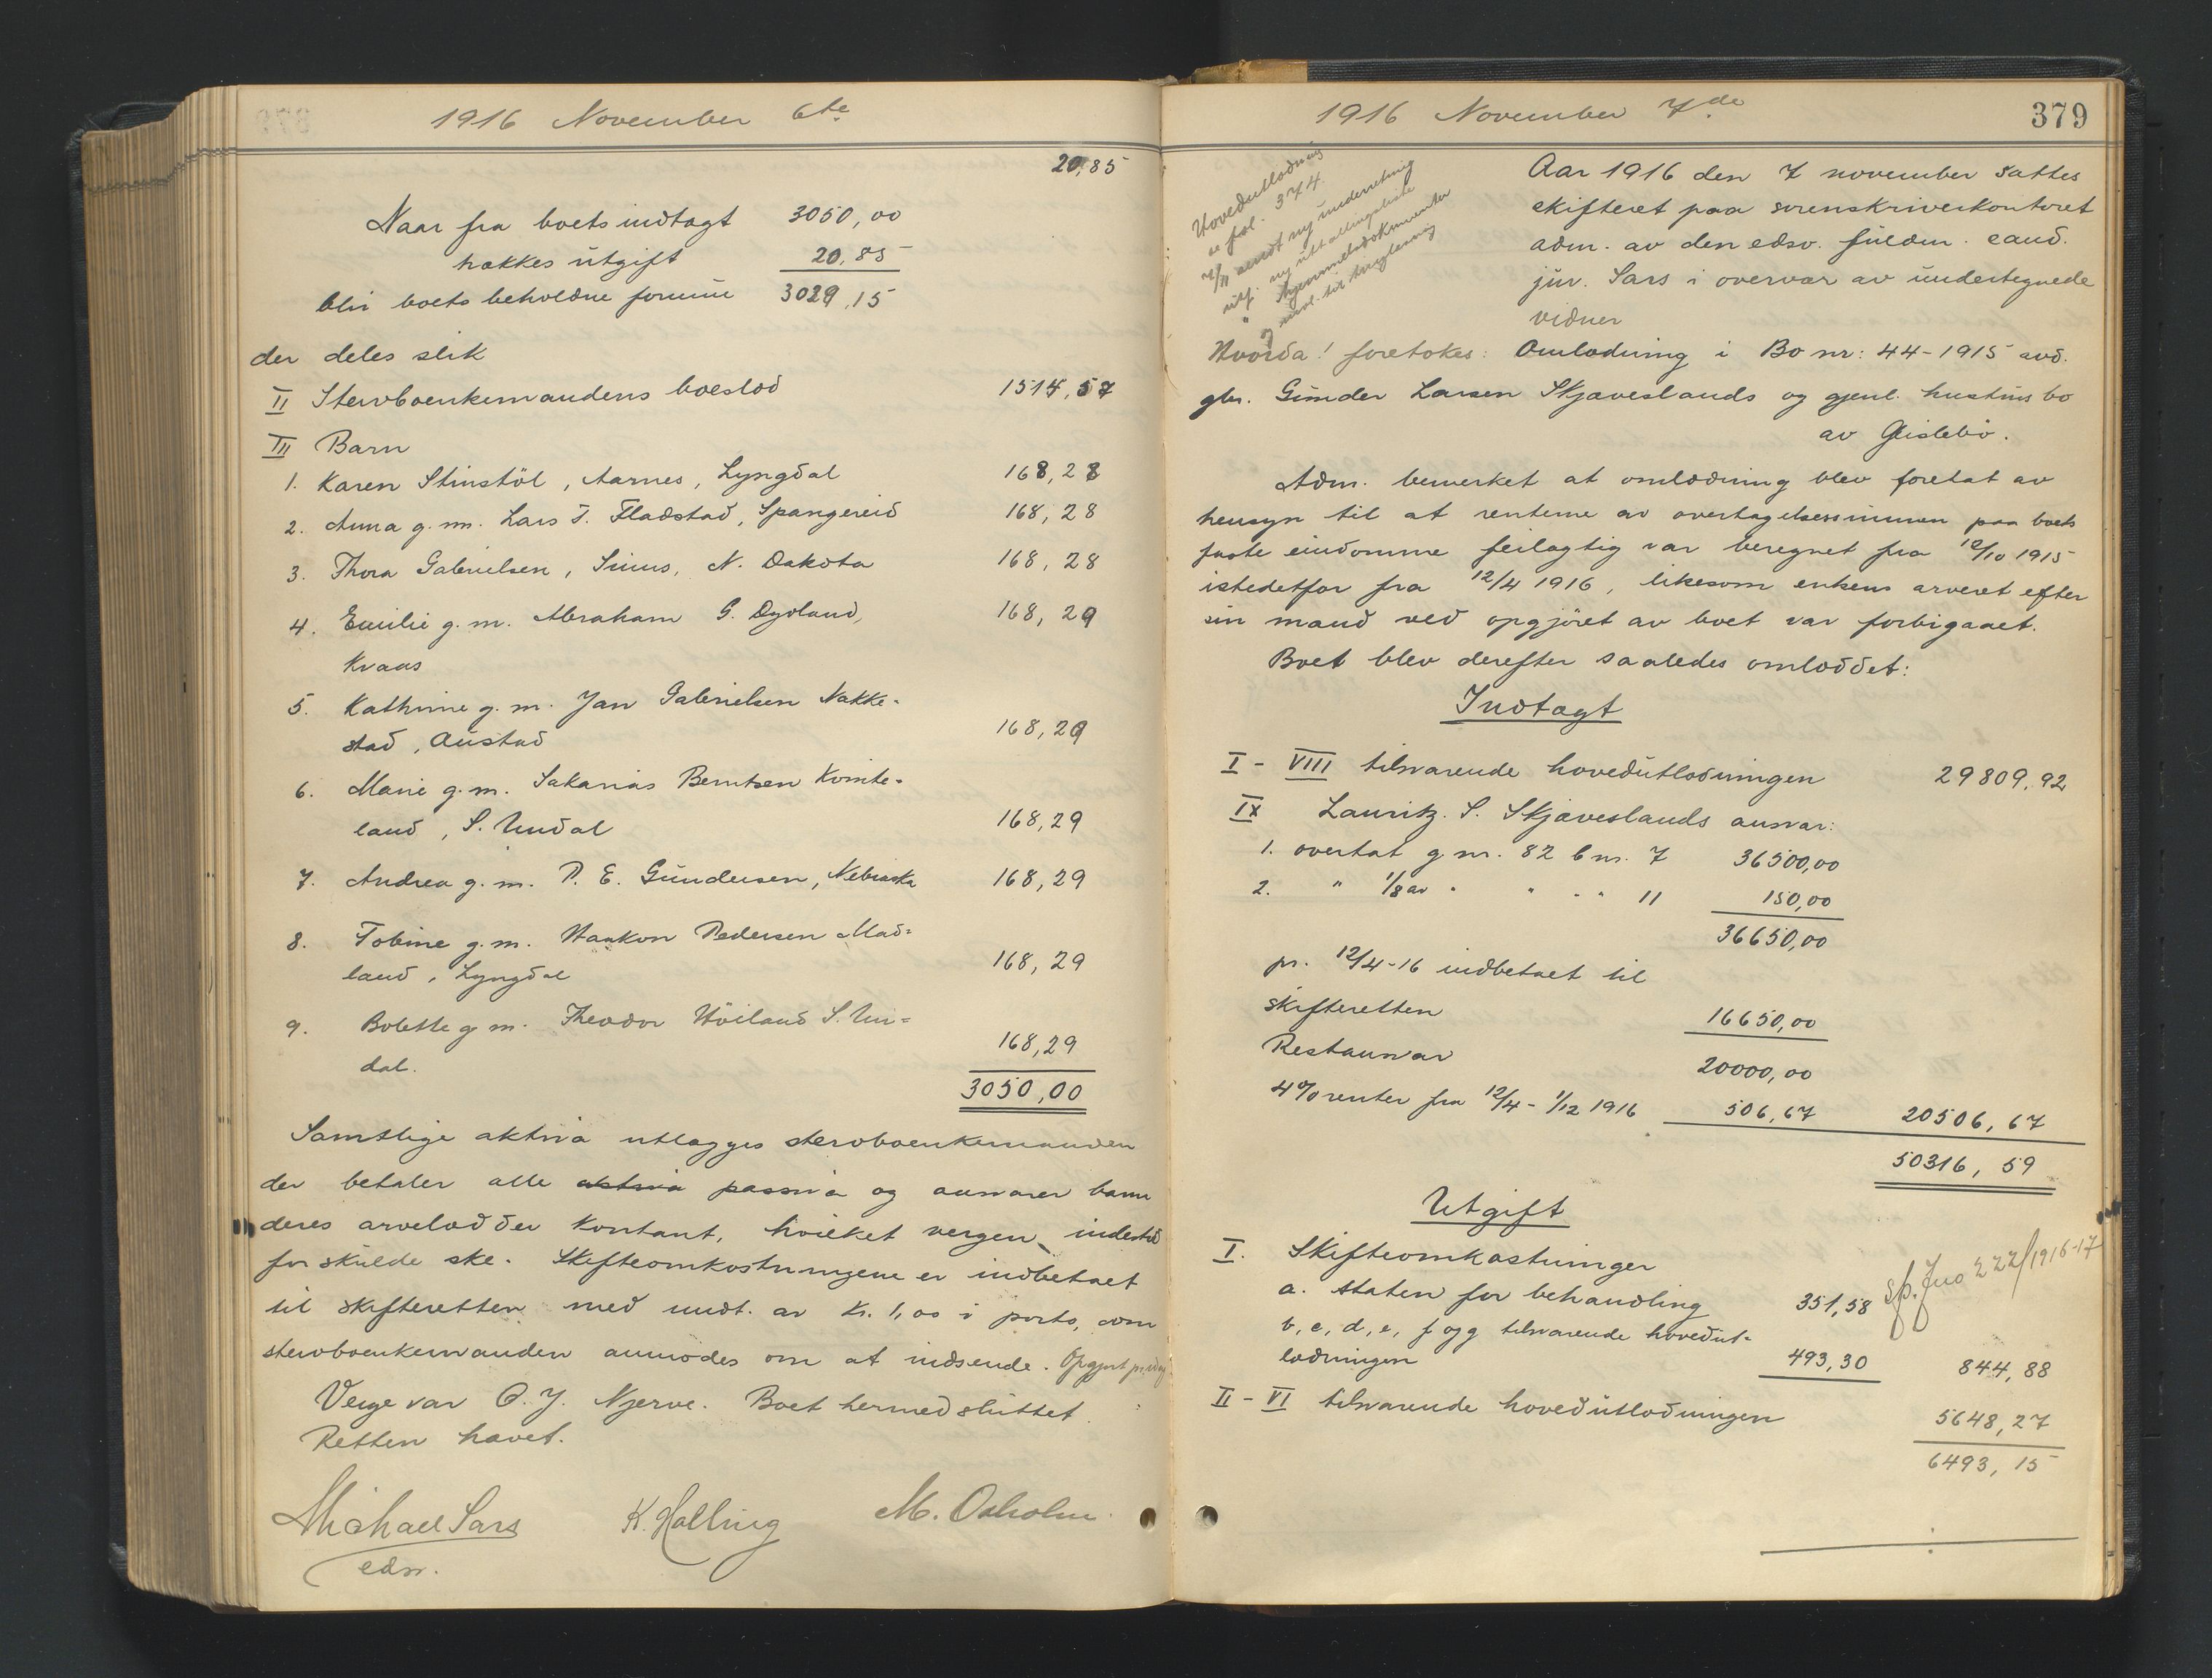 1916 November 6te
20,85
Naar fra boets indtægt 3050,00
trækkes utgift 20,85
blir boets beholdne formue 3029,15
der deles slik
II Stervboenkemandens boeslod 1514,57
III Barn
1. Karen Stinstöl, Aarnes, Lyngdal 168,28
2. Anna g. m. Lars T. Fladstad, Spangereid 168,28
3. Thora Gabrielsen, Sims, N. Dakota 168,28
4. Emilie g. m. Abraham G. Dydland, 168,29
Kvaas
5. Kathrine g. m. Jan Gabrielsen Nakke-
stad, Austad 168,29
6. Marie g. m. Sakarias Berntsen Kvinte-
land, S. Undal 168,29
7. Andrea g. m. P. E. Gundersen, Nebraska 168,29
8. Tobine g. m. Haakon Pedersen Mad-
land, Lyngdal 168,29
9. Bolette g m. Theodor Höiland S. Un-
dal. 168,29
3050,00
Samtlige aktiva utlægges stervboenkemanden
der betaler alle aktiva passiva og ansvarer barn
deres arvelodder kontant, hvilket vergen indestod
for skulde ske. Skifteomkostningene er indbetalt
til skifteretten med undt. av Kr. 1,00 i porto, som
stervboenkemanden anmodes om at indsende. Opgjort
Verge var O. J. Njerve. Boet hermed sluttet.
Retten hævet.
Michael Sars K. Halling M. Oxholm.
edsv.
1916 November 7de 379
Hovedutlodning
se fol. 374.
7/11 sendt ny underretning
utf. ny utbetalingsliste
" hjemmelsdokumenter
og til tinglysning
Aar 1916 den 7 november sattes
skifteret paa sorenskriverkontoret
adm. av den edsv. fuldm. cand.
jur. Sars i overvær av undertegnede
vidner
Hvorda! foretokes: Omlodning i Bo nr: 44-1915 avd.
gbr. Gunder Larsen Skjæveslands og gjenl. hustrus bo
av Gislebö.
Adm. bemerket at omlodning blev foretat av
hensyn til at renterne av overtagelsessummen paa boets
faste eiendomme feilagtig var beregnet fra 12/10 1915
istedetfor fra 12/4 1916, likesom enkens arveret efter
sin mand ved opgjöret av boet var forbigaaet.
Boet blev derefter saaledes omloddet:
Indtægt
I - VIII tilsvarende hovedutlodningen 29809,92
IX Lauritz. S. Skjæveslands ansvar:
1. overtat g nr. 82 b nr. 7 36500,00
2. " 1/8 av " " " " 11 150,00
36650,00
pr. 12/4-16 indbetalt til
skifteretten 16650,00
Restansvar 20000,00
4% renter fra 12/4 - 1/12 1916 506,67 20506,67
50316,59
Utgift
I. Skifteomkostninger
a. staten for behandling 351,58 sp. Jno 222/1916-17
b, c, d, e, f og g tilsvarende hovedut-
lodningen 493,30 844,88
II - VI tilsvarende hovedutlodningen 5648,27
6493,15